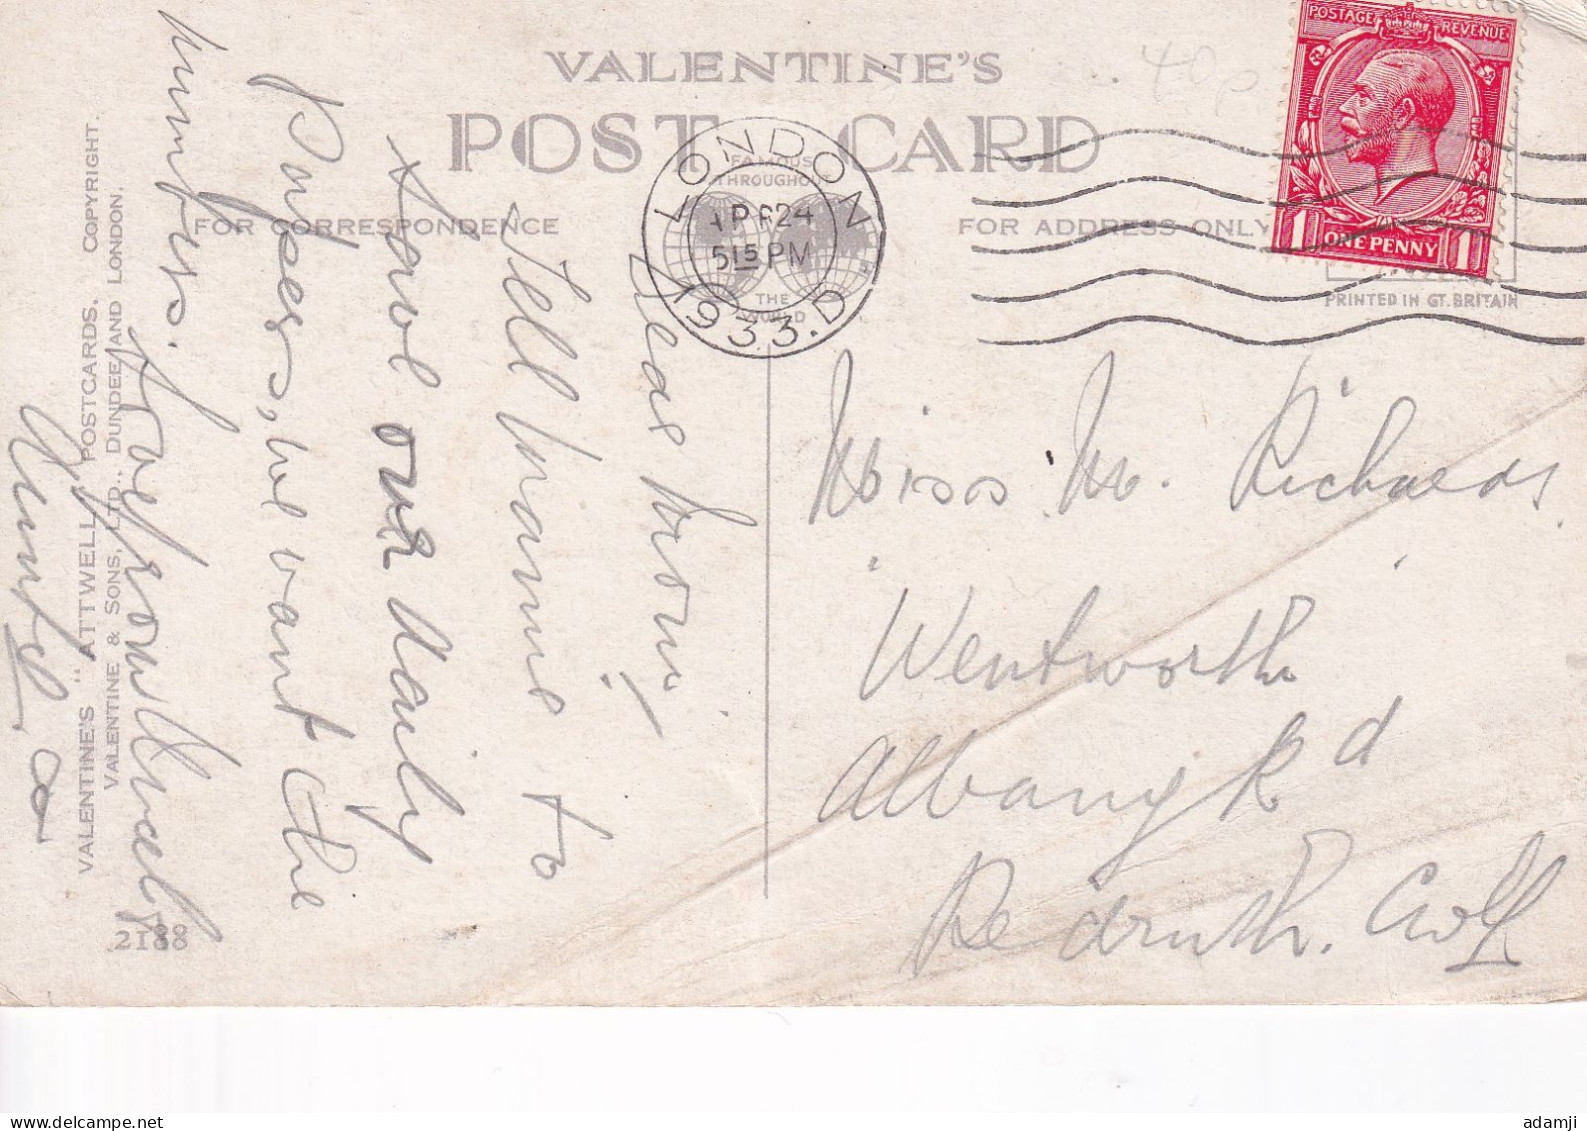 VALENTINE'S
POST CARD
FAMOUS
THROUGHOUT
THE
WORLD
FOR CORRESPONDENCE
FOR ADDRESS ONLY
LONDON
APR 24
515 PM
1933.D
POSTAGE REVENUE
1 ONE PENNY 1
PRINTED IN GT. BRITAIN
40p
Tell to
Save our daily
Papers, we want the
numbers.
Love from
Miss M. Richards
Wentworth
Albany Rd
Redruth.
VALENTINE'S "ATTWELL" POSTCARDS. COPYRIGHT.
VALENTINE & SONS, LTD., DUNDEE AND LONDON.
2188
adamji